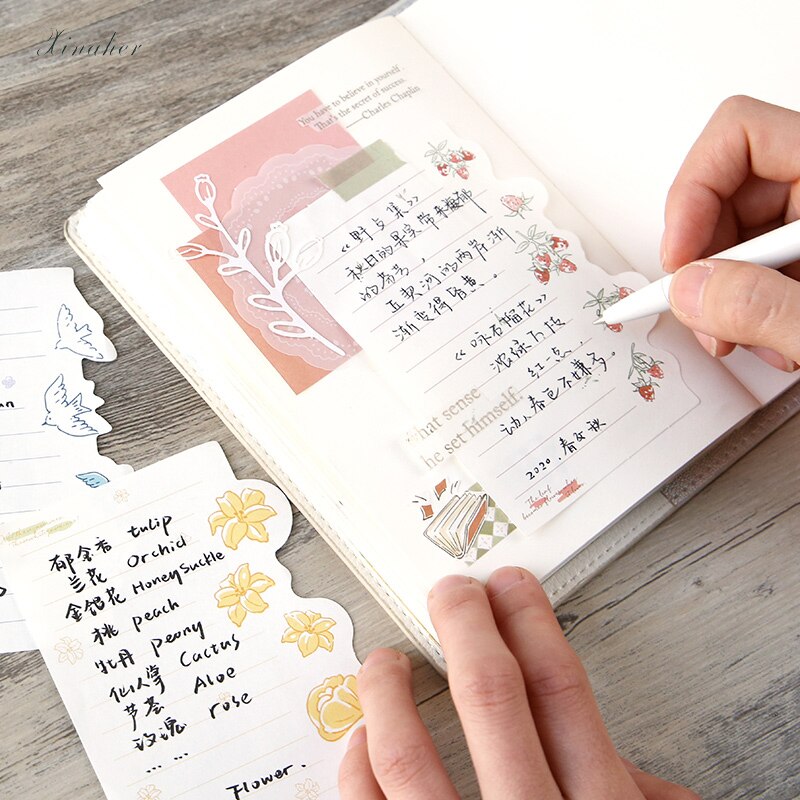 Xinaher
You have to believe in yourself.
That's the secret of success.
——Charles Chaplin
《野与集》
秋日的果实带来馥郁
的芬芳，
且黄河的两岸渐
渐变得昏黄。
《咏石榴花》
浓绿万枝
红一点，
动人春色不须多。
2020.春女秋
what sense
he set himself.
The leaf
becomes
郁金香 tulip
兰花 Orchid
金银花 Honeysuckle
桃 peach
牡丹 peony
仙人掌 Cactus
芦荟 Aloe
玫瑰 rose
... ...
Flower.